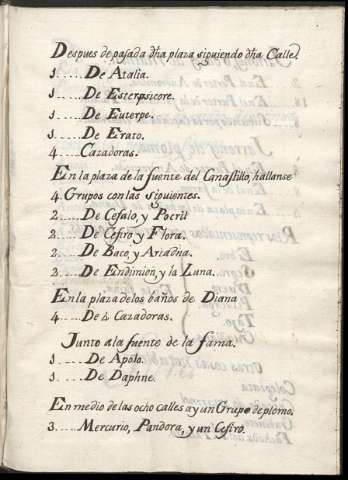 Despues de pasada dha plaza siguiendo dha Calle
1......De Atalia.
1......De Esterpsicore.
1......De Euterpe.
1......De Erato.
4......Cazadoras.
En la plaza de la fuente del Canastillo, hallanse
4. Grupos con las siguientes.
2......De Cefalo, y Pocril
2......De Cefiro y Flora.
2......De Baco, y Ariadna.
2......De Endimion, y la Luna.
En la plaza de los baños de Diana
4......De 4 Cazadoras.
Junto a la fuente de la fama.
1......De Apolo.
1......De Daphne.
En medio de las ocho calles ay un Grupo de plomo.
3......Mercurio, Pandora, y un Cefiro.